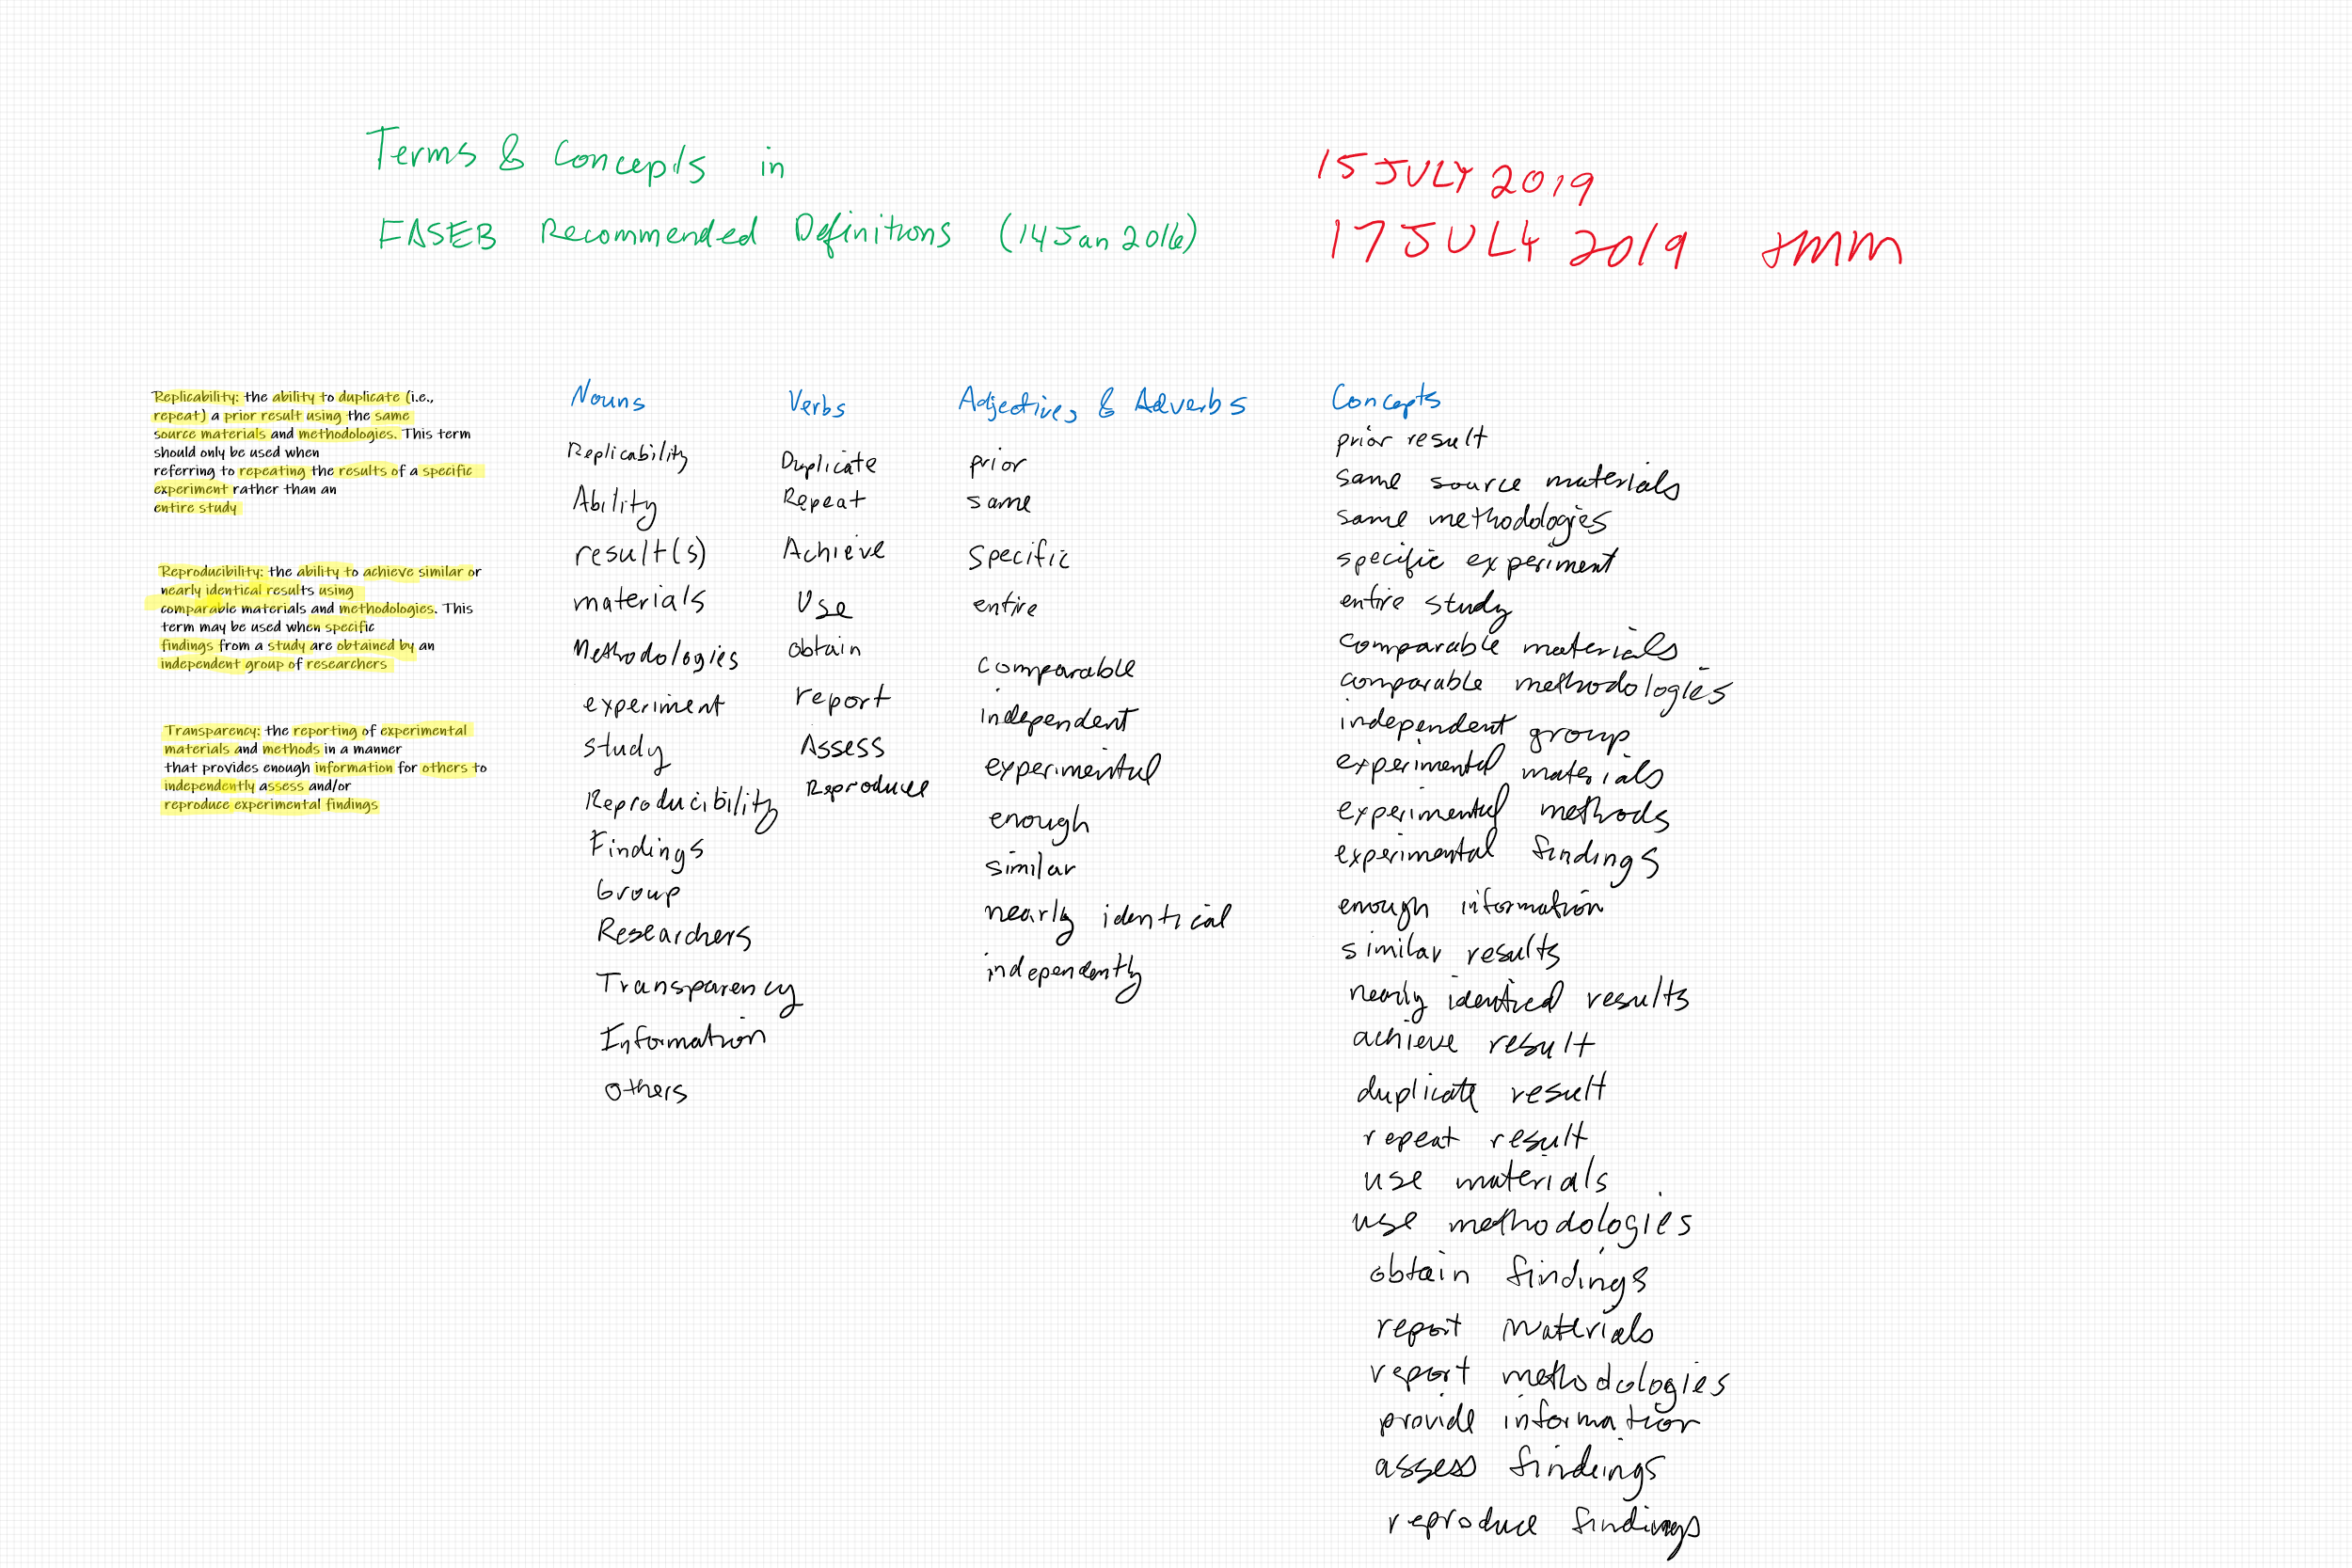 Terms & Concepts in
FASEB Recommended Definitions (14 Jan 2016)
15 JULY 2019
17 JULY 2019
Replicability: the ability to duplicate (i.e.,
repeat) a prior result using the same
source materials and methodologies. This term
should only be used when
referring to repeating the results of a specific
experiment rather than an
entire study
Reproducibility: the ability to achieve similar or
nearly identical results using
comparable materials and methodologies. This
term may be used when specific
findings from a study are obtained by an
independent group of researchers
Transparency: the reporting of experimental
materials and methods in a manner
that provides enough information for others to
independently assess and/or
reproduce experimental findings
Nouns
Replicability
Ability
result(s)
materials
Methodologies
experiment
study
Reproducibility
Findings
Group
Researchers
Transparency
Information
others
Verbs
Duplicate
Repeat
Achieve
Use
obtain
report
Assess
Reproduce
Adjectives & Adverbs
prior
same
specific
entire
comparable
independent
experimental
enough
similar
nearly identical
independently
Concepts
prior result
same source materials
same methodologies
specific experiment
entire study
comparable materials
comparable methodologies
independent group
experimental materials
experimental methods
experimental findings
enough information
similar results
nearly identical results
achieve result
duplicate result
repeat result
use materials
use methodologies
obtain findings
report materials
report methodologies
provide information
assess findings
reproduce findings